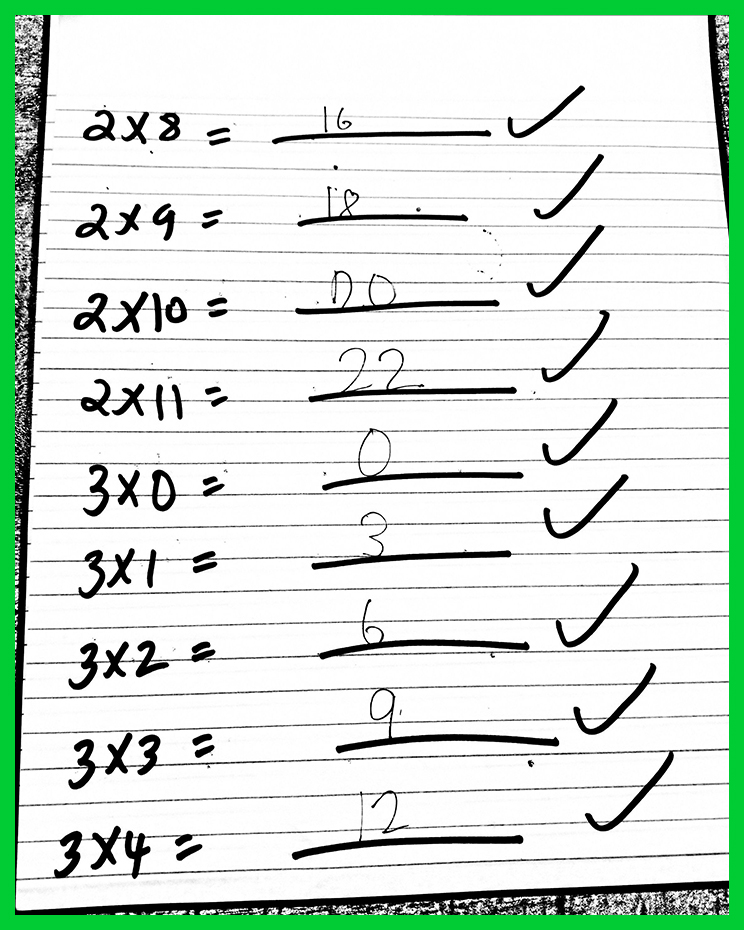 2×8 = 16 ✓
2×9 = 18 ✓
2×10 = 20 ✓
2×11 = 22 ✓
3×0 = 0 ✓
3×1 = 3 ✓
3×2 = 6 ✓
3×3 = 9 ✓
3×4 = 12 ✓